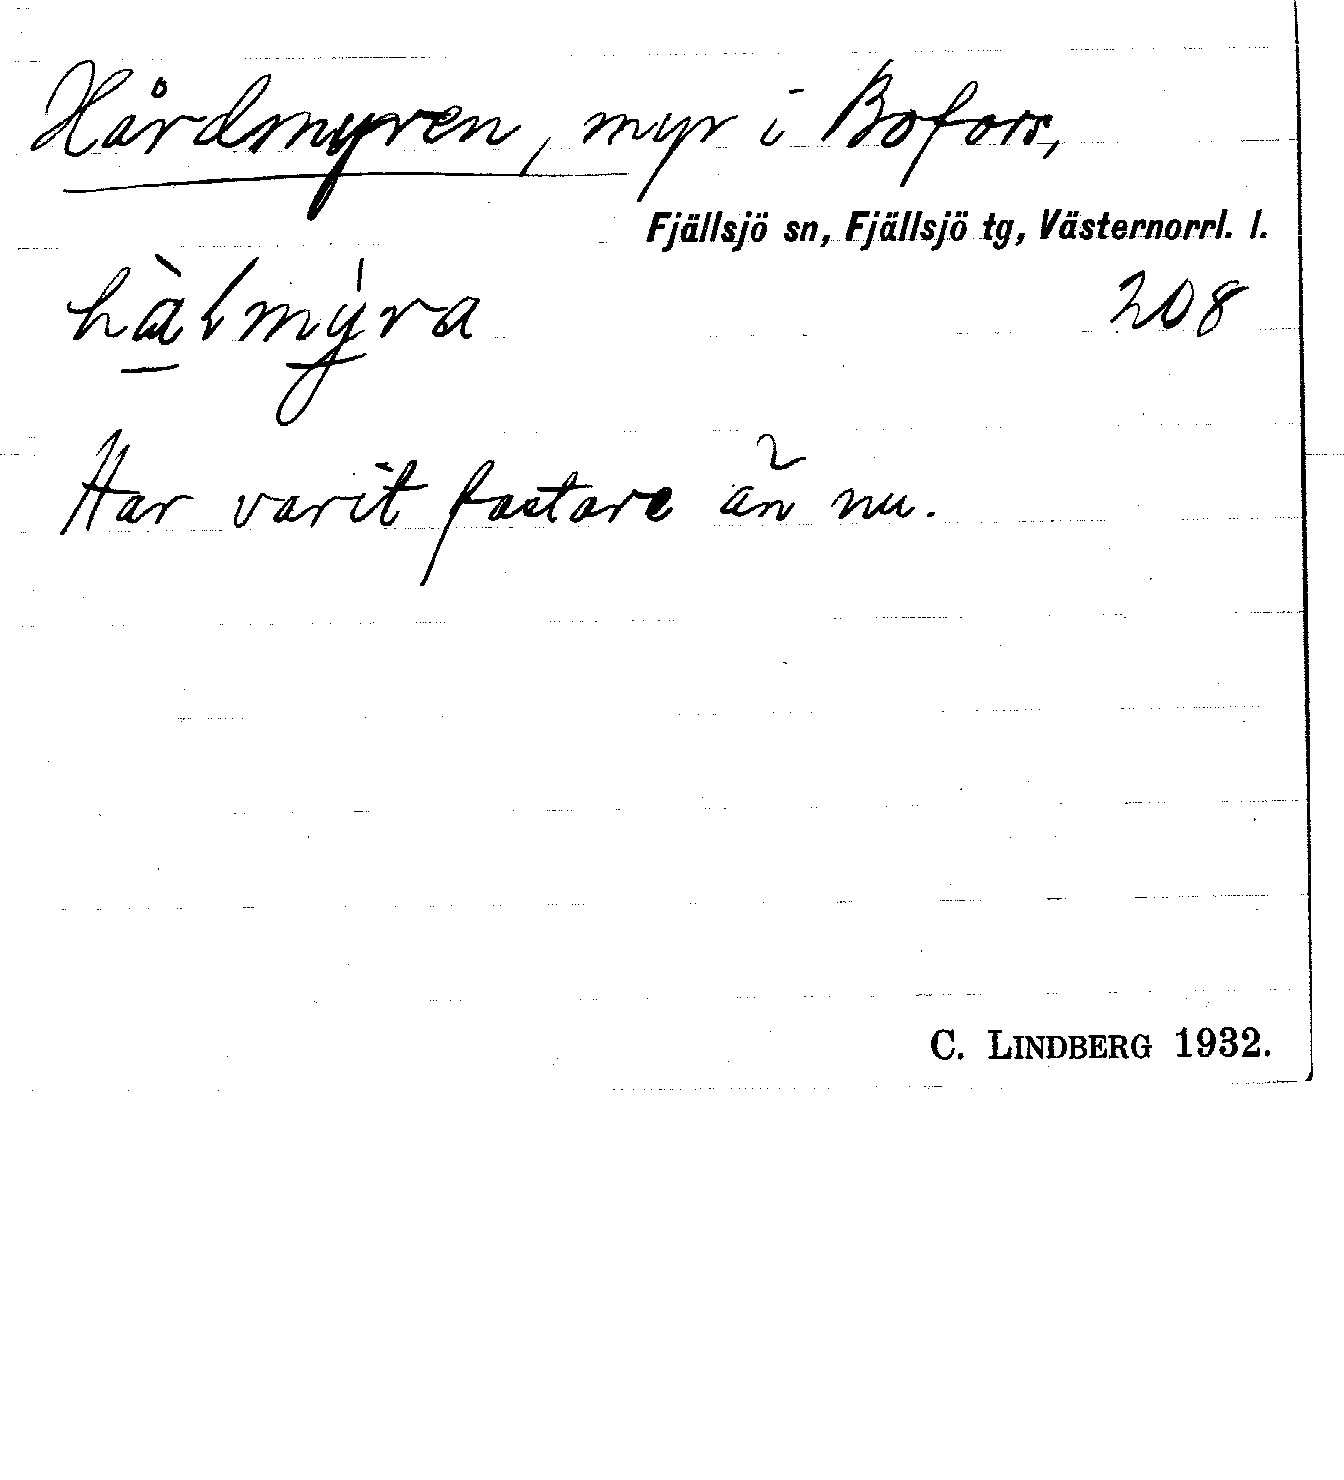 Hårdmyren, myr i Bofors,
Fjällsjö sn, Fjällsjö tg, Västernorrl. l.
hà̱lmý̱ra 208
Har varit fastare än nu.
C. LINDBERG 1932.